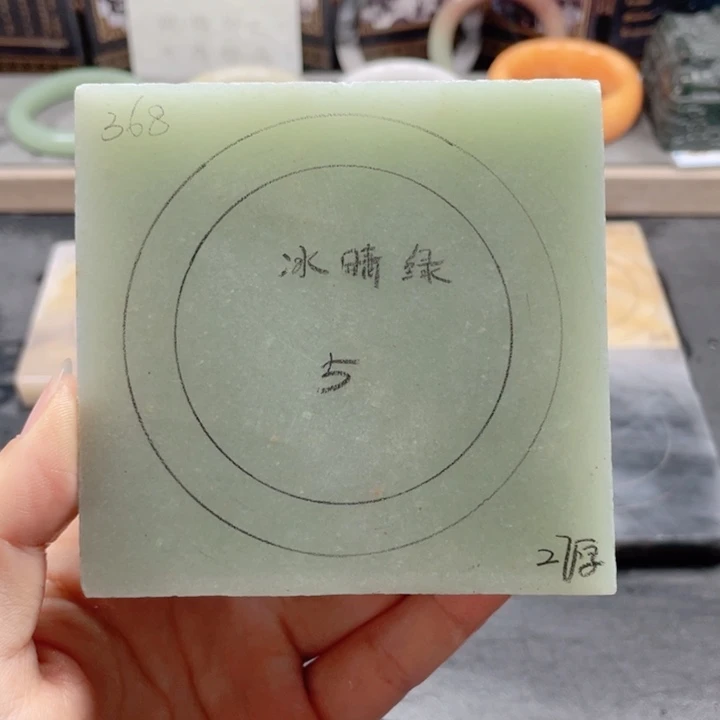 368
冰晴绿
5
27厚